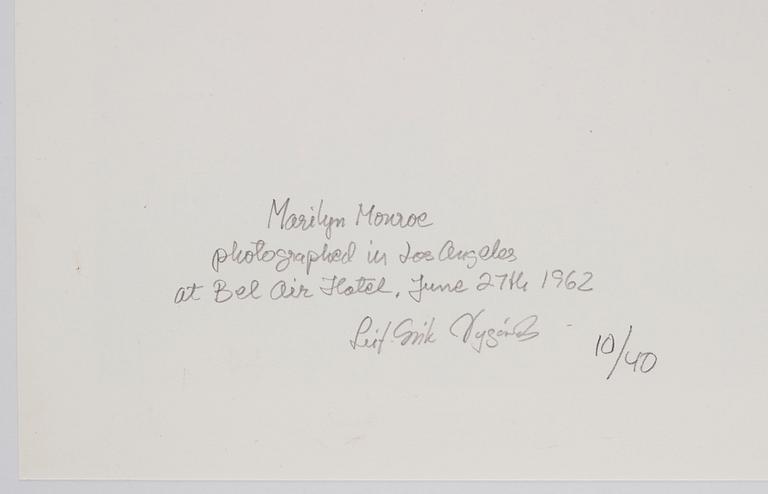 Marilyn Monroe
photographed in Los Angeles
at Bel Air Hotel, June 27th 1962
Leif-Erik Nygårds
10/40